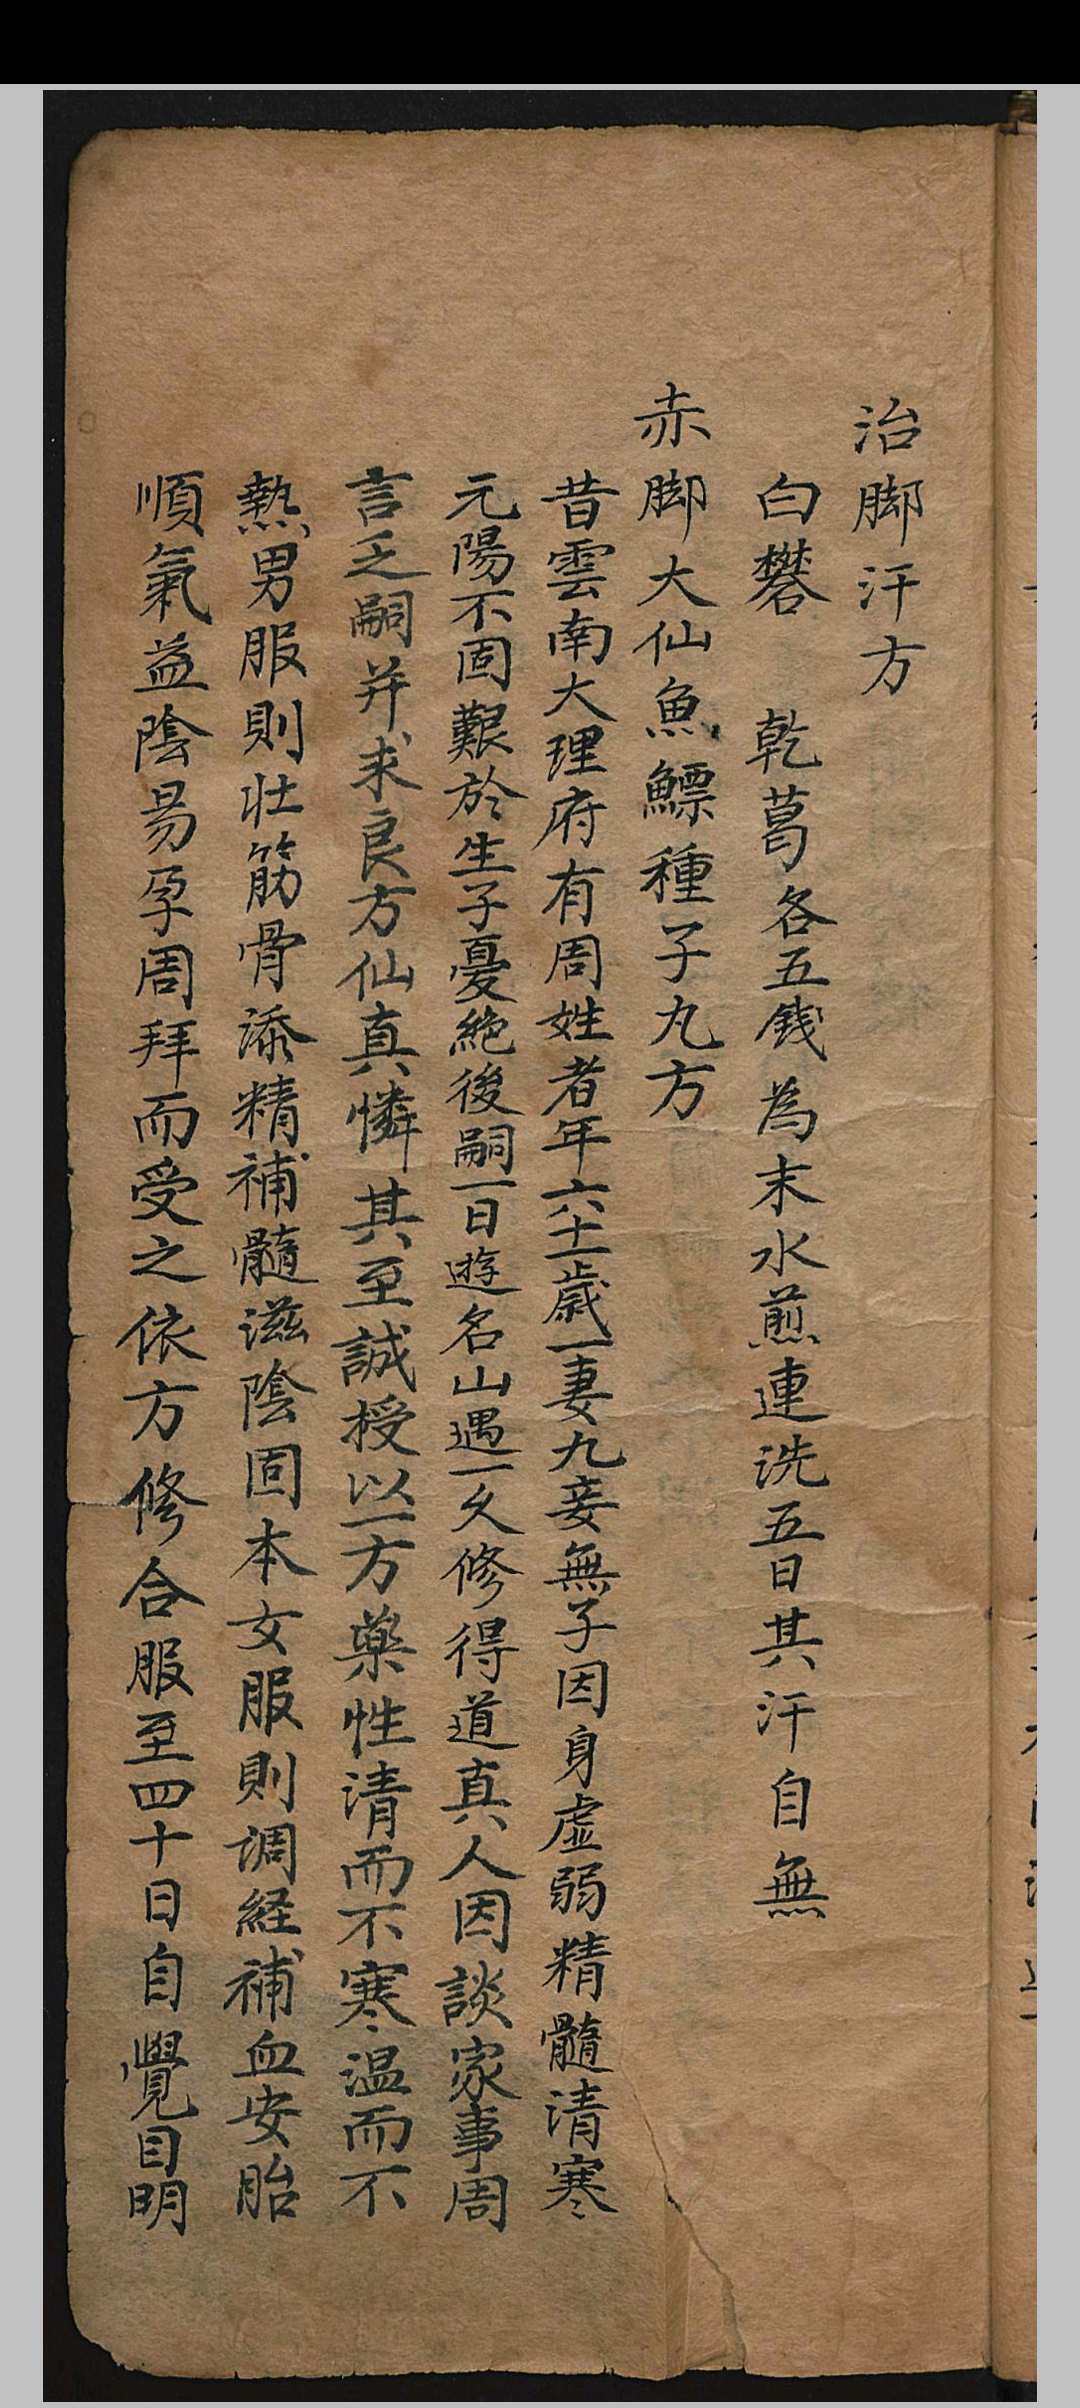 治脚汗方
白礬 乾葛各五錢為末水煎連洗五日其汗自無
赤脚大仙魚鰾種子丸方
昔雲南大理府有周姓者年六十一歲一妻九妾無子因身虛弱精髓清寒
元陽不固艱於生子憂絶後嗣一日遊名山遇一久修得道真人因談家事周
言乏嗣并求良方仙真憐其至誠授以一方藥性清而不寒温而不
熱男服則壯筋骨添精補髓滋陰固本女服則调経補血安胎
順氣益陰易孕周拜而受之依方修合服至四十日自覺目明